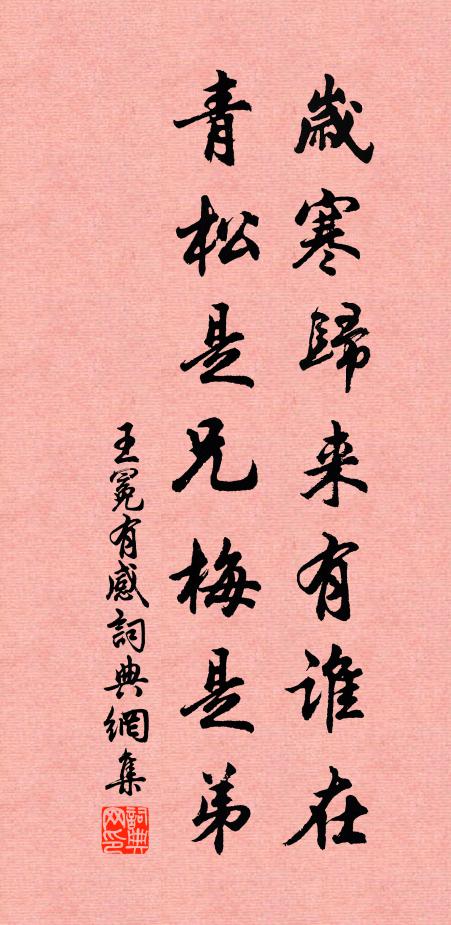 歲寒歸来有誰在
青松是兄梅是弟
王冕有感詞典網集
詞典网印